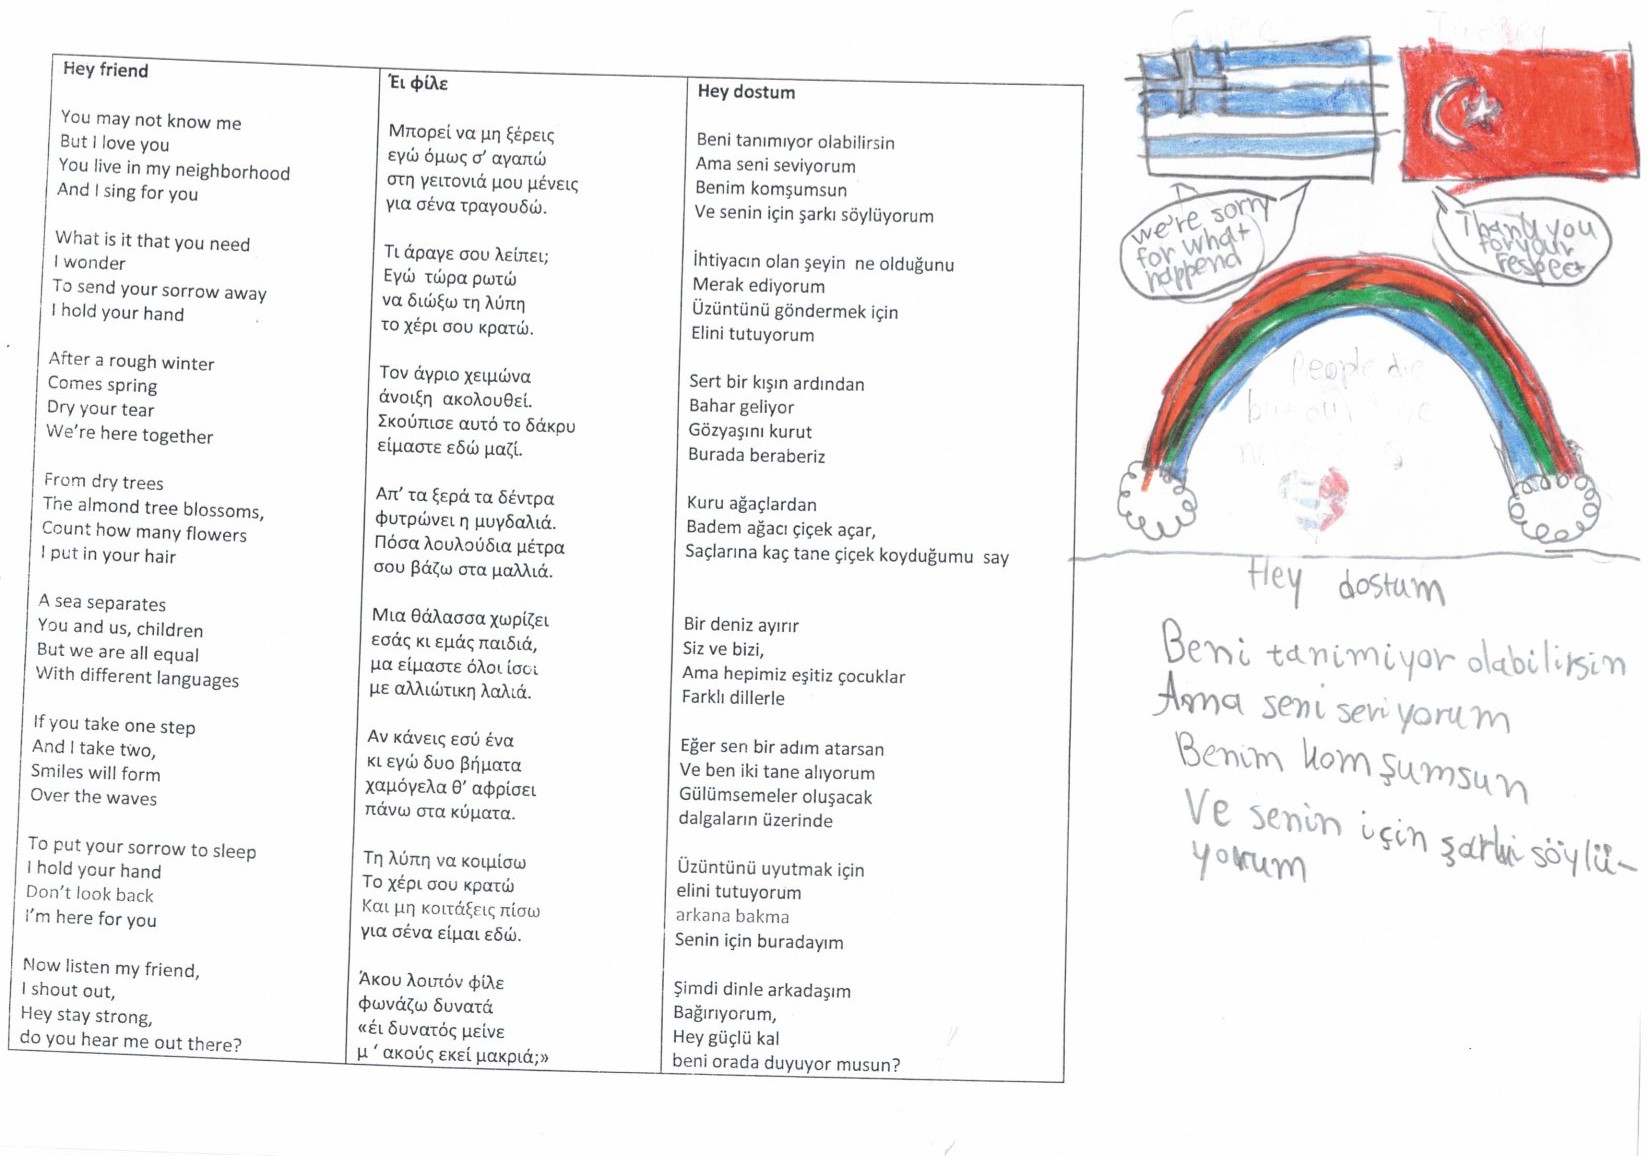 Hey friend
You may not know me
But I love you
You live in my neighborhood
And I sing for you
What is it that you need
I wonder
To send your sorrow away
I hold your hand
After a rough winter
Comes spring
Dry your tear
We're here together
From dry trees
The almond tree blossoms,
Count how many flowers
I put in your hair
A sea separates
You and us, children
But we are all equal
With different languages
If you take one step
And I take two,
Smiles will form
Over the waves
To put your sorrow to sleep
I hold your hand
Don't look back
I'm here for you
Now listen my friend,
I shout out,
Hey stay strong,
do you hear me out there?
Έι φίλε
Μπορεί να μη ξέρεις
εγώ όμως σ' αγαπώ
στη γειτονιά μου μένεις
για σένα τραγουδώ.
Τι άραγε σου λείπει;
Εγώ τώρα ρωτώ
να διώξω τη λύπη
το χέρι σου κρατώ.
Τον άγριο χειμώνα
άνοιξη ακολουθεί.
Σκούπισε αυτό το δάκρυ
είμαστε εδώ μαζί.
Απ' τα ξερά τα δέντρα
φυτρώνει η μυγδαλιά.
Πόσα λουλούδια μέτρα
σου βάζω στα μαλλιά.
Μια θάλασσα χωρίζει
εσάς κι εμάς παιδιά,
μα είμαστε όλοι ίσοι
με αλλιώτικη λαλιά.
Αν κάνεις εσύ ένα
κι εγώ δυο βήματα
χαμόγελα θ' αφρίσει
πάνω στα κύματα.
Τη λύπη να κοιμίσω
Το χέρι σου κρατώ
Και μη κοιτάξεις πίσω
για σένα είμαι εδώ.
Άκου λοιπόν φίλε
φωνάζω δυνατά
«έι δυνατός μείνε
μ ' ακούς εκεί μακριά;»
Hey dostum
Beni tanımıyor olabilirsin
Ama seni seviyorum
Benim komşumsun
Ve senin için şarkı söylüyorum
İhtiyacın olan şeyin ne olduğunu
Merak ediyorum
Üzüntünü göndermek için
Elini tutuyorum
Sert bir kışın ardından
Bahar geliyor
Gözyaşını kurut
Burada beraberiz
Kuru ağaçlardan
Badem ağacı çiçek açar,
Saçlarına kaç tane çiçek koyduğumu say
Bir deniz ayırır
Siz ve bizi,
Ama hepimiz eşitiz çocuklar
Farklı dillerle
Eğer sen bir adım atarsan
Ve ben iki tane alıyorum
Gülümsemeler oluşacak
dalgaların üzerinde
Üzüntünü uyutmak için
elini tutuyorum
arkana bakma
Senin için buradayım
Şimdi dinle arkadaşım
Bağırıyorum,
Hey güçlü kal
beni orada duyuyor musun?
Turkey
we're sorry
for what
happend
Thank you
for your
respect
People die
but our
Hey dostum
Beni tanimiyor olabilirsin
Ama seni seviyorum
Benim komşumsun
Ve senin için şarki söylü-
yorum